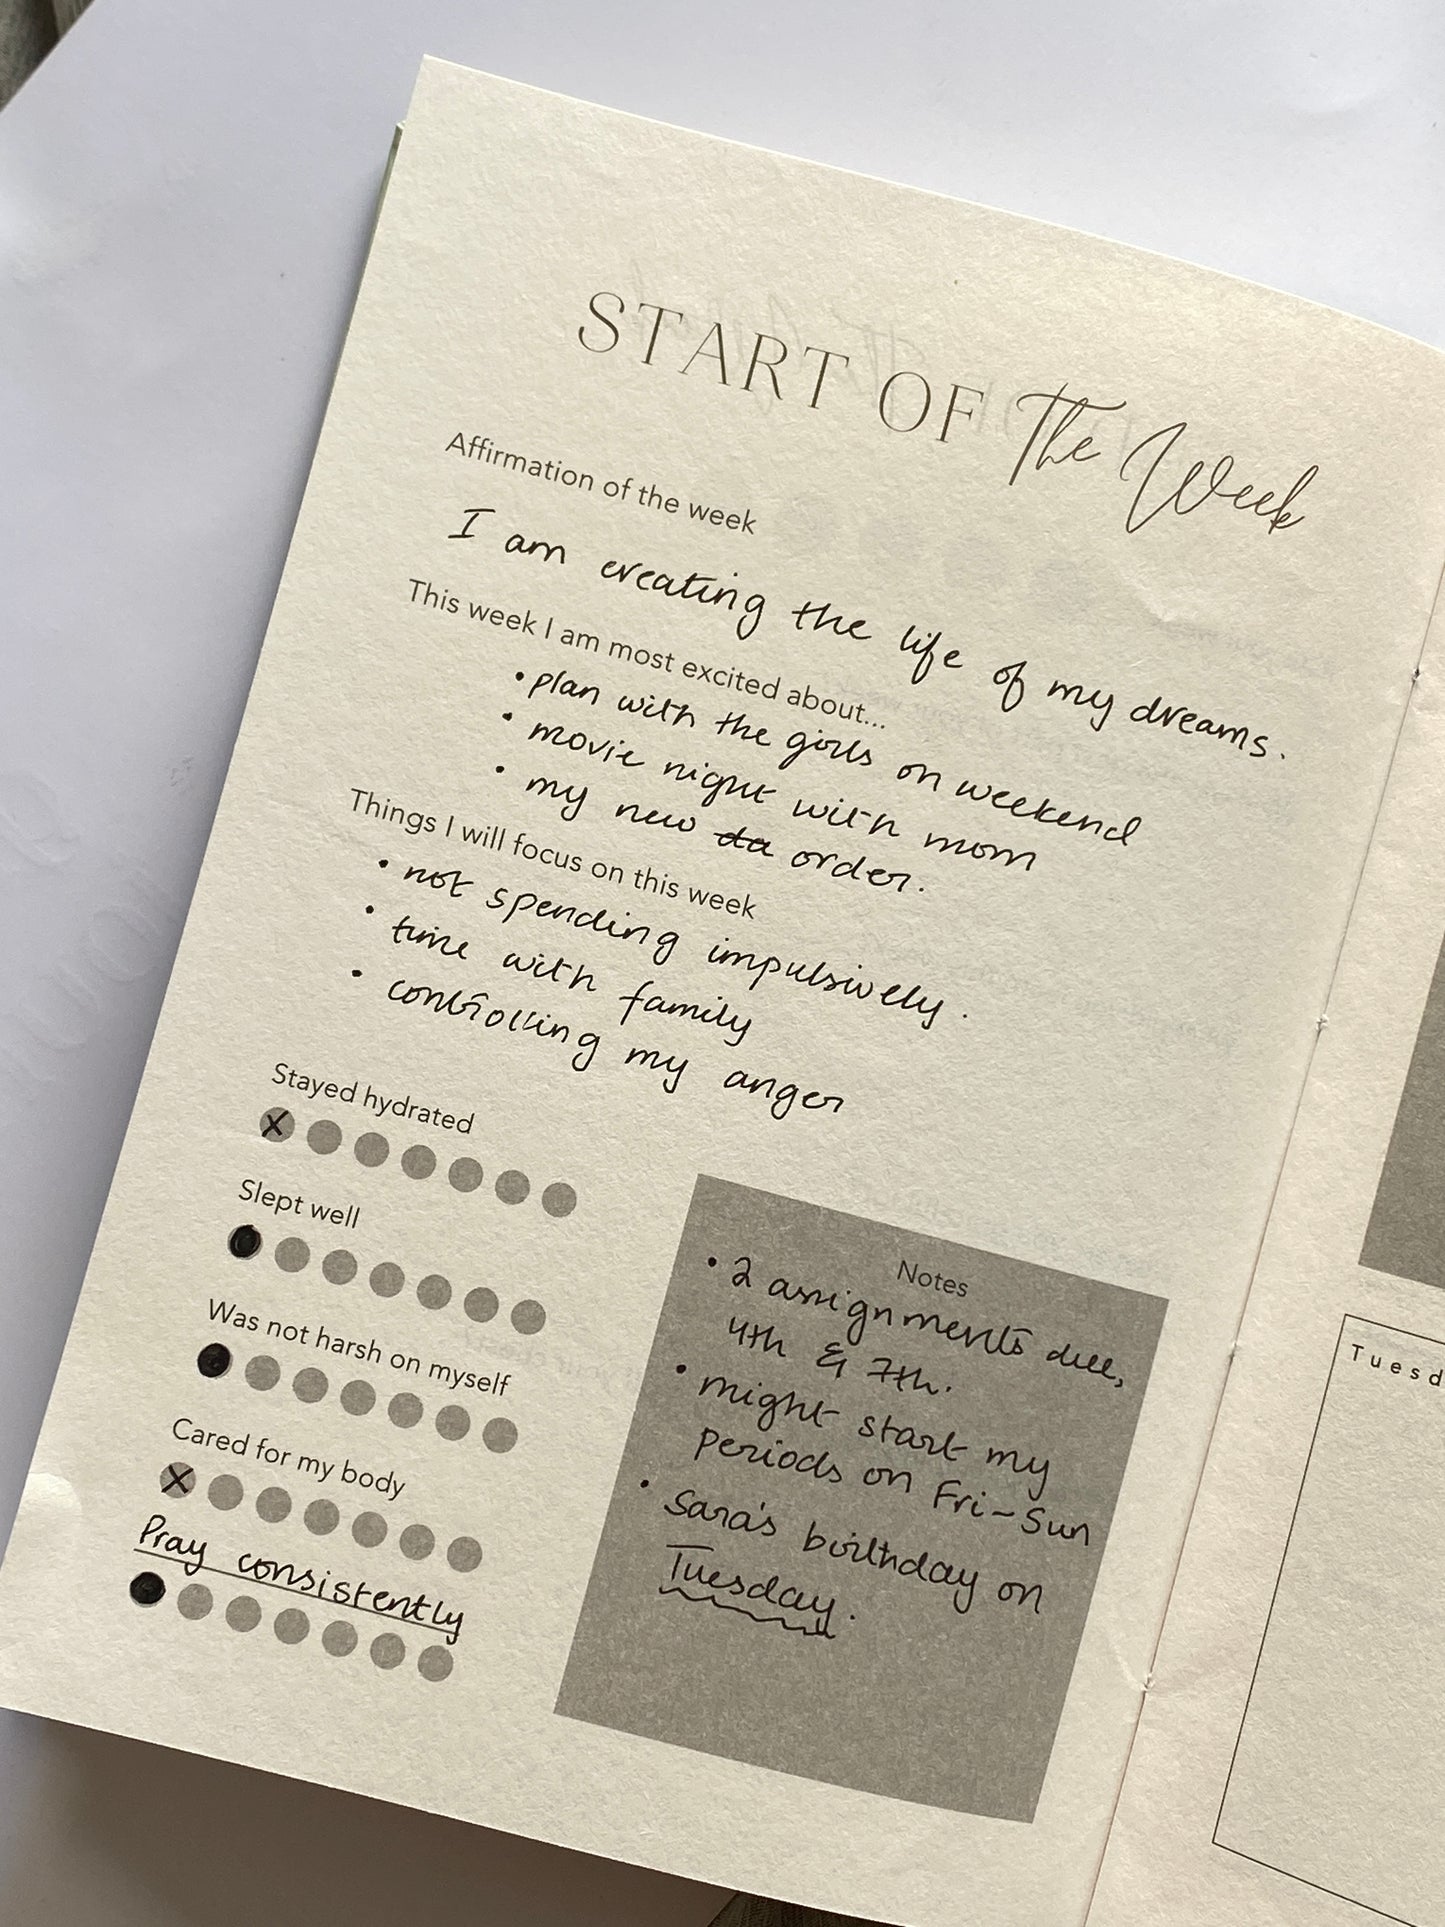 START OF The Week
Affirmation of the week
I am creating the life of my dreams.
This week I am most excited about...
• plan with the girls on weekend
• movie night with mom
• my new da order.
Things I will focus on this week
• not spending impulsively.
• time with family
• controlling my anger
Stayed hydrated
X
Slept well
Was not harsh on myself
Cared for my body
X
Pray consistently
Notes
• 2 assignments due,
4th & 7th.
• might start my
periods on Fri-Sun
• Sara's birthday on
Tuesday.
Tuesd